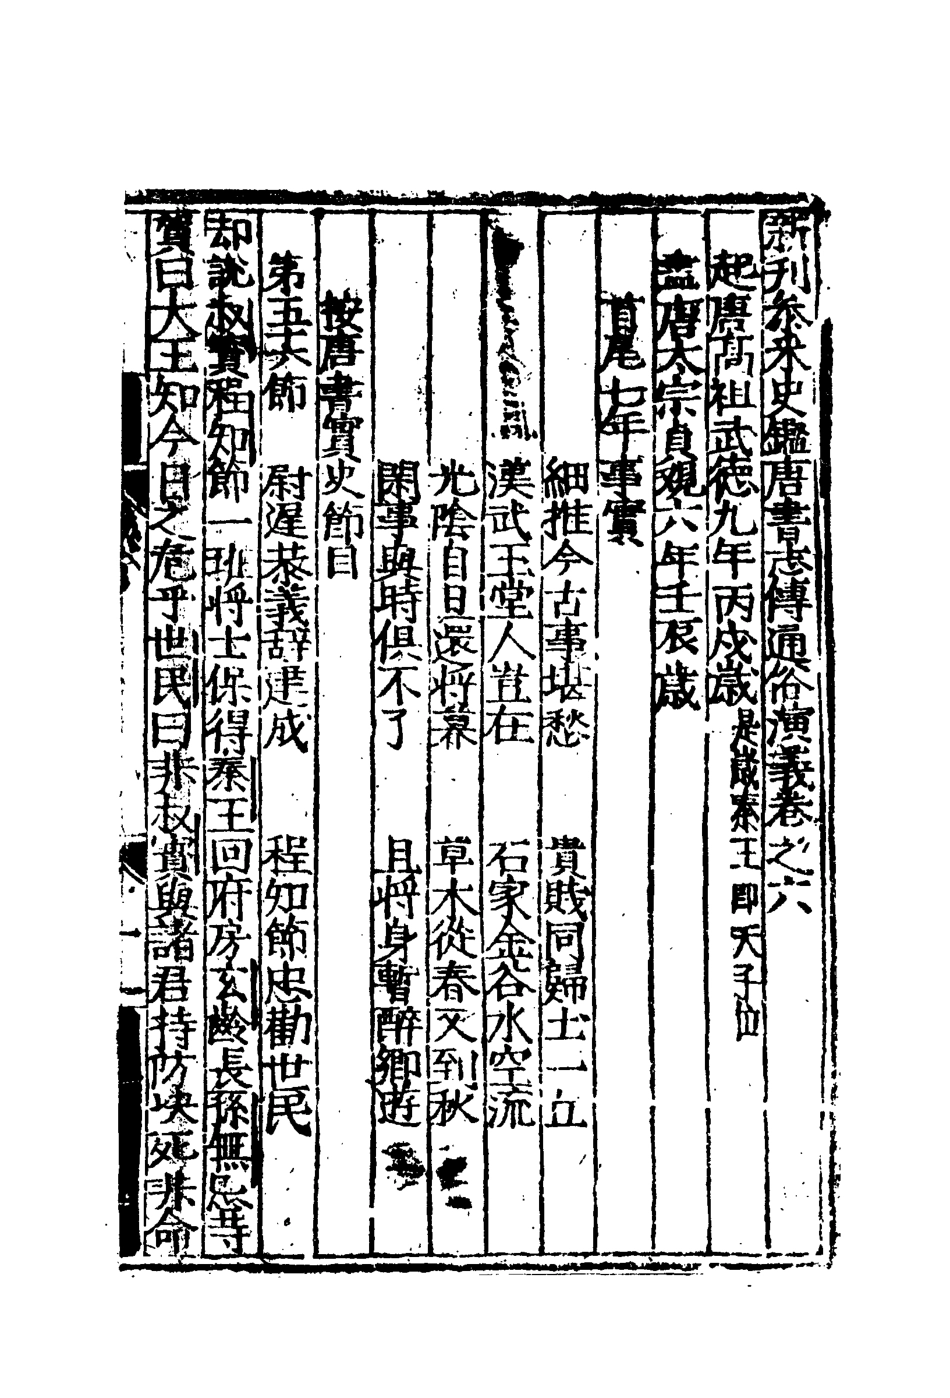 新刋叅采史鑑唐書志傳通俗演義卷之六
起唐髙祖武德九年丙戌歳是歳秦王即天子位
盡唐太宗貞觀六年壬辰歳
首尾七年事實
細推今古事堪愁　貴賎同歸土一丘
漢武玉堂人豈在　石家金谷水空流
光陰自旦還將暮　草木從春又到秋
閑事與時俱不了　且將身暫醉鄉遊
按唐書實史節目
第五十六節　尉遲恭義辞建成　程知節忠勸世民
却說叔寶程知節一班將士保得秦王回府房玄齡長孫無忌等
賀曰大王知今日之危乎世民曰非叔寶與諸君持防抉死非命